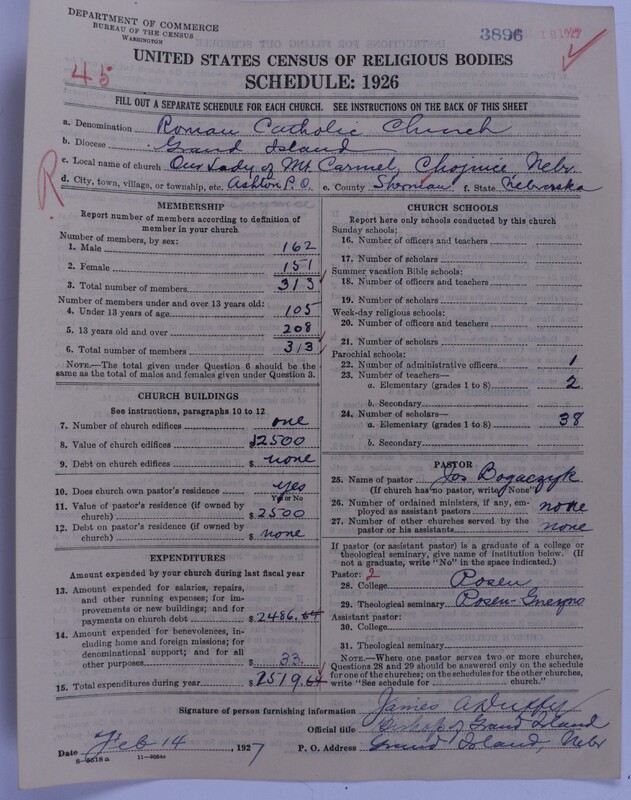 DEPARTMENT OF COMMERCE
BUREAU OF THE CENSUS
WASHINGTON
3896
1927
45
UNITED STATES CENSUS OF RELIGIOUS BODIES
SCHEDULE: 1926
FILL OUT A SEPARATE SCHEDULE FOR EACH CHURCH. SEE INSTRUCTIONS ON THE BACK OF THIS SHEET
a. Denomination Roman Catholic Church
b. Diocese Grand Island
c. Local name of church Our Lady of Mt. Carmel, Chojnice, Nebr.
d. City, town, village, or township, etc. Ashton P.O. e. County Sherman f. State Nebraska
R
MEMBERSHIP
Report number of members according to definition of
member in your church
Number of members, by sex:
1. Male 162
2. Female 151
3. Total number of members 313
Number of members under and over 13 years old:
4. Under 13 years of age 105
5. 13 years old and over 208
6. Total number of members 313
NOTE.—The total given under Question 6 should be the
same as the total of males and females given under Question 3.
CHURCH BUILDINGS
See instructions, paragraphs 10 to 12
7. Number of church edifices one
8. Value of church edifices $12500
9. Debt on church edifices $ none
10. Does church own pastor's residence yes
Yes or No
11. Value of pastor's residence (if owned by
church) $2500
12. Debt on pastor's residence (if owned by
church) $ none
EXPENDITURES
Amount expended by your church during last fiscal year
13. Amount expended for salaries, repairs,
and other running expenses; for im-
provements or new buildings; and for
payments on church debt $2486.64
14. Amount expended for benevolences, in-
cluding home and foreign missions; for
denominational support; and for all
other purposes $ 33.
15. Total expenditures during year $2519.64
CHURCH SCHOOLS
Report here only schools conducted by this church
Sunday schools:
16. Number of officers and teachers
17. Number of scholars
Summer vacation Bible schools:
18. Number of officers and teachers
19. Number of scholars
Week-day religious schools:
20. Number of officers and teachers
21. Number of scholars
Parochial schools:
22. Number of administrative officers 1
23. Number of teachers—
a. Elementary (grades 1 to 8) 2
b. Secondary
24. Number of scholars—
a. Elementary (grades 1 to 8) 38
b. Secondary
PASTOR
25. Name of pastor Jos Bogaczyk
(If church has no pastor, write "None")
26. Number of ordained ministers, if any, em-
ployed as assistant pastors none
27. Number of other churches served by the
pastor or his assistants none
If pastor (or assistant pastor) is a graduate of a college or
theological seminary, give name of institution below. (If
not a graduate, write "No" in the space indicated.)
Pastor: 2
28. College Posen
29. Theological seminary Posen-Gnezno
Assistant pastor:
30. College
31. Theological seminary
NOTE.—Where one pastor serves two or more churches,
Questions 28 and 29 should be answered only on the schedule
for one of the churches; on the schedules for the other churches,
write "See schedule for church."
Signature of person furnishing information James A Duffy
Official title Bishop of Grand Island
Date Feb 14, 1927 P. O. Address Grand Island, Nebr
8-5518a